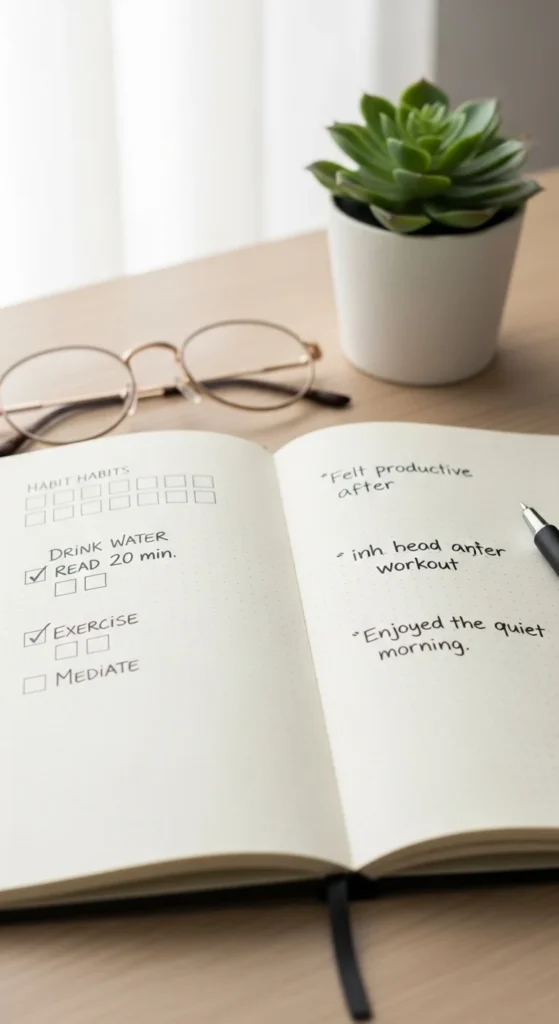 HABIT HABITS
DRINK WATER
READ 20 min.
EXERCISE
MEDiATE
Felt productive
after
inh head anter
workout
Enjoyed the quiet
morning.